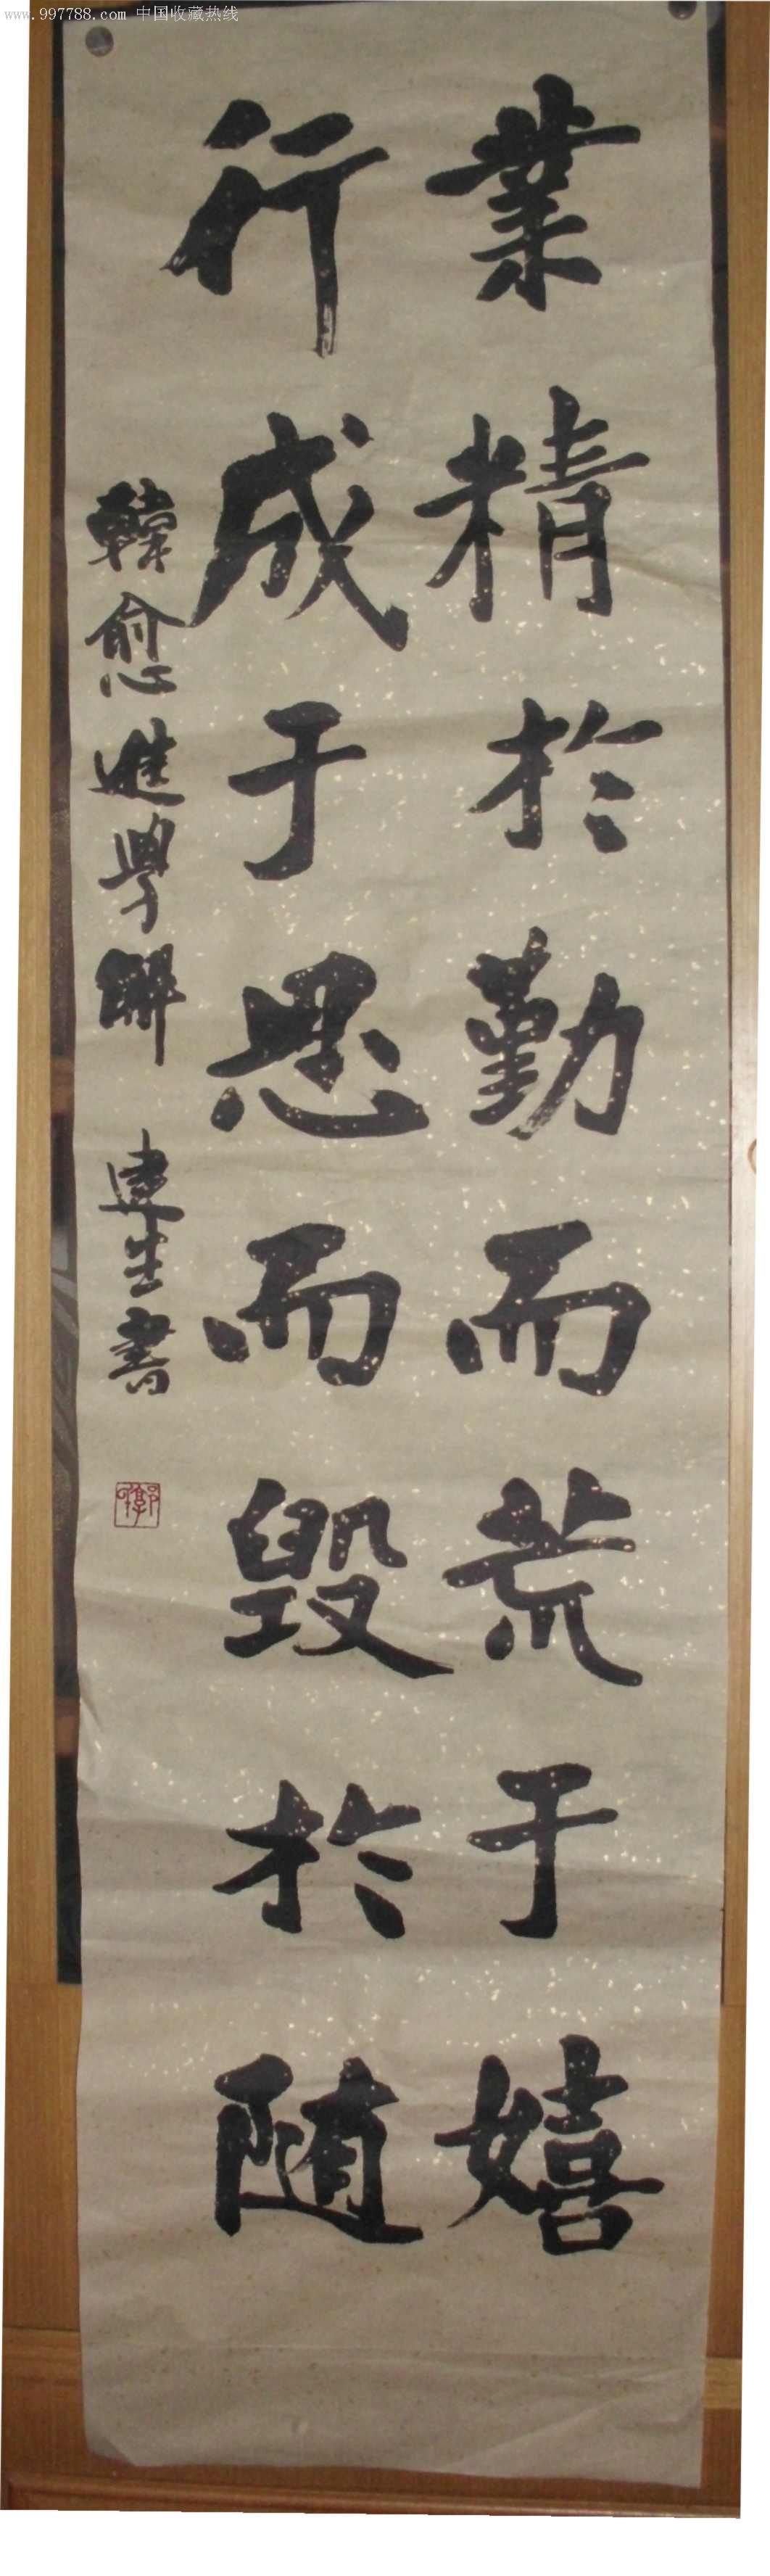 www.997788.com 中国收藏热线
業精於勤而荒于嬉
行成于思而毁於随
韓愈進學解 建生書